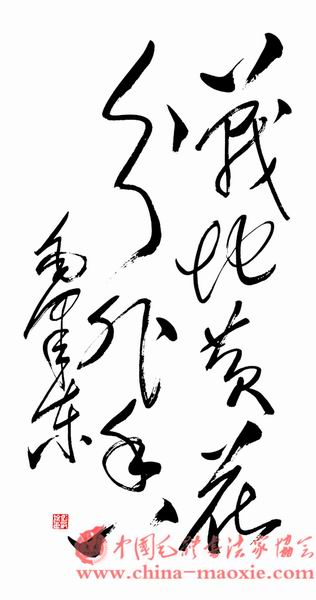 戰地黄花
分外香
毛澤東
中国毛体书法家协会
www.china-maoxie.com